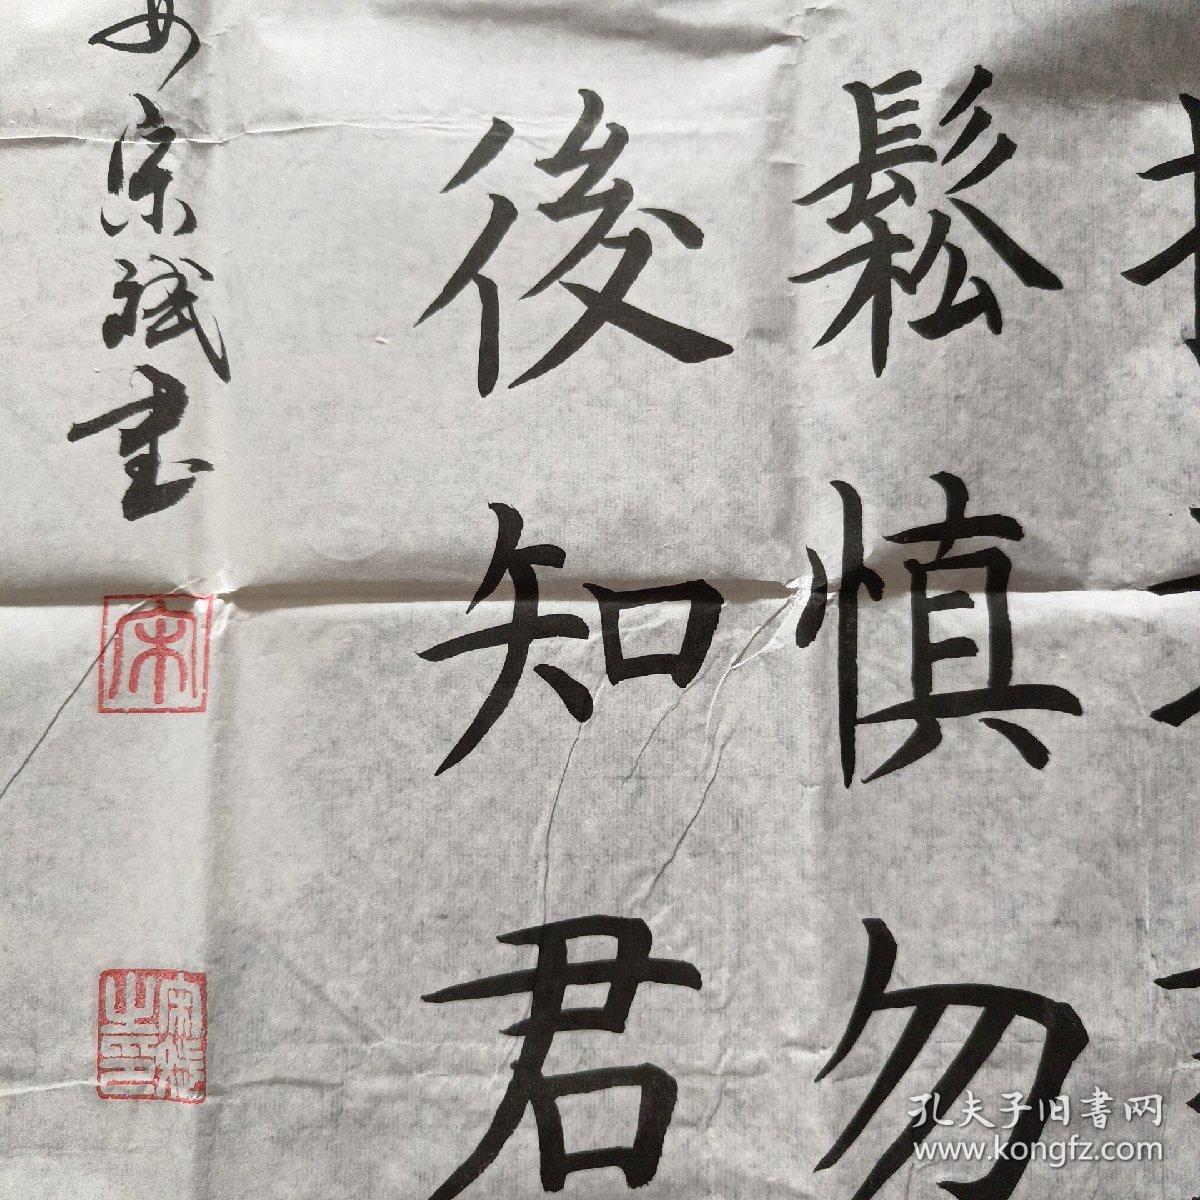 鬆慎勿
後知君
宋斌書
宋
孔夫子旧書网
www.kongfz.com